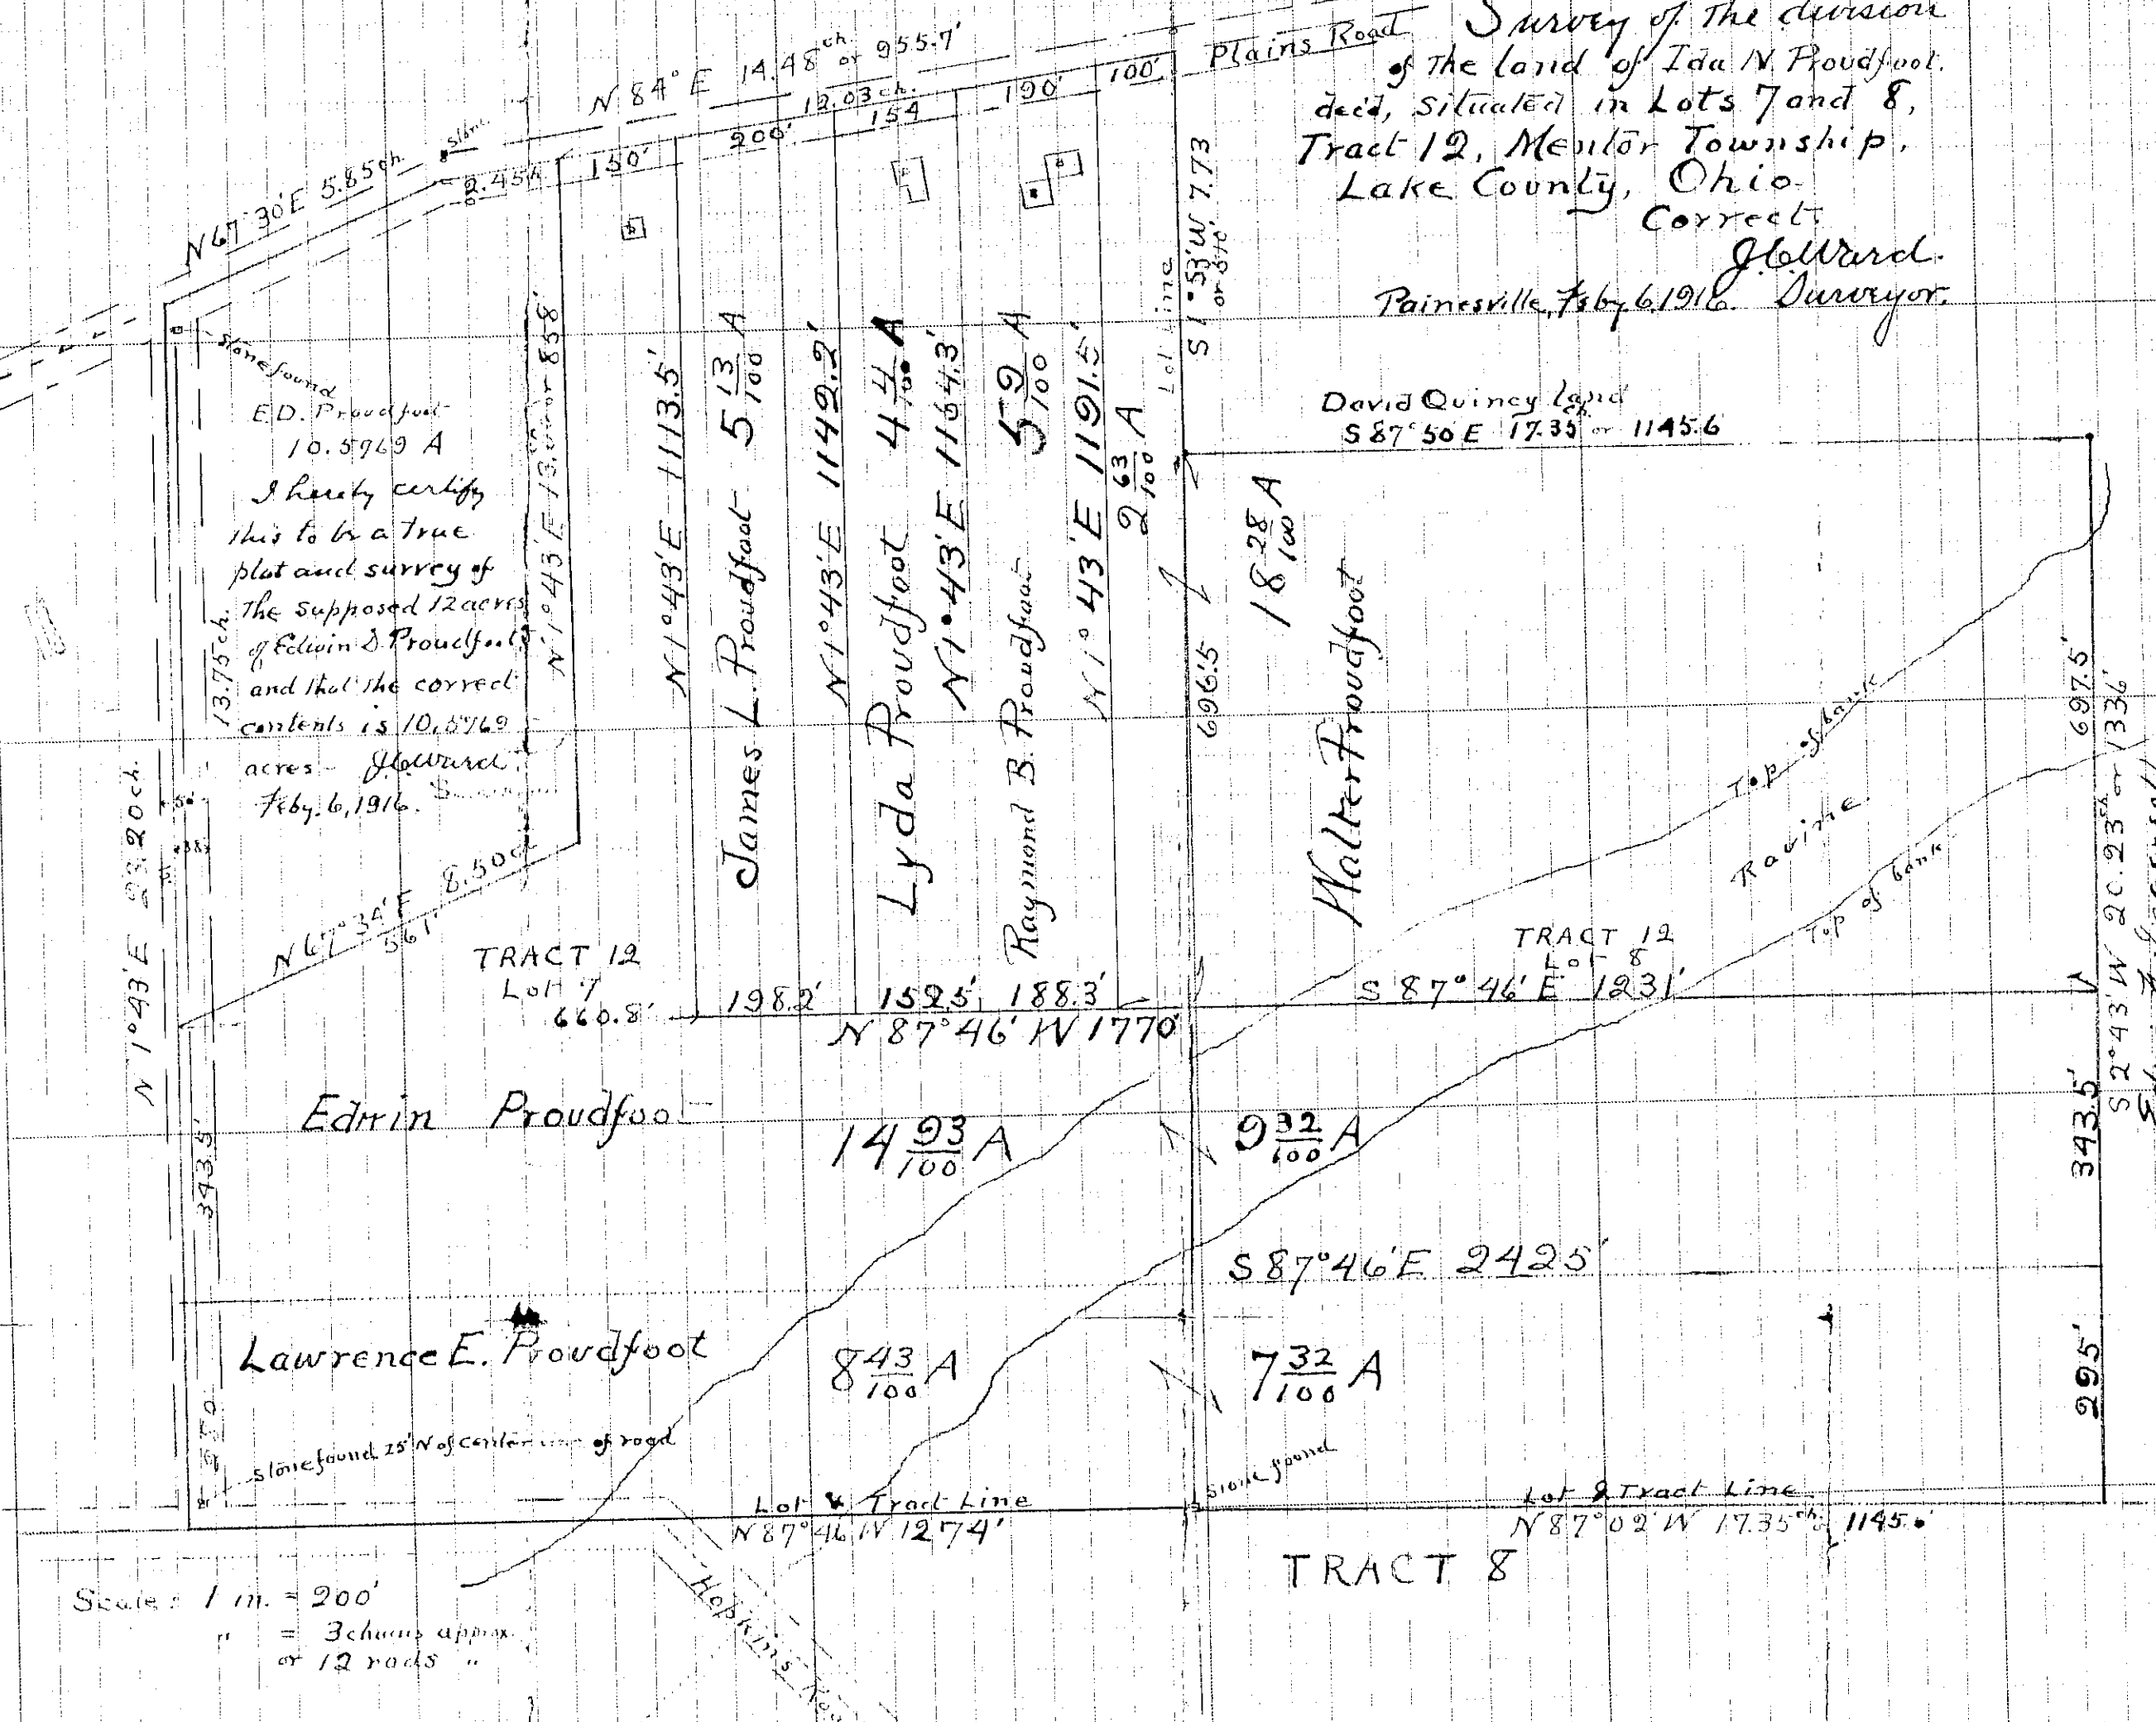 Survey of the division
of the land of Ida N. Proudfoot.
dec'd, situated in Lots 7 and 8,
Tract 12, Mentor Township,
Lake County, Ohio
Correct.
Painesville, Feby. 6. 1916. Surveyor.
Plains Road
N 84° E 14.48 ch. or 955.7'
12.03 ch.
N 67° 30' E 5.85 ch.
stone
2.45
150'
200'
154
190'
100'
stone found
E.D. Proudfoot
10.5769 A
I hereby certify
this to be a true
plat and survey of
the supposed 12 acres
of Edwin D. Proudfoot
and that the correct
contents is 10.5769
acres
Feby. 6, 1916.
13.75 ch.
N 1° 43' E 23.20 ch.
N 1° 43' E 13.00 or 858'
N 1° 43' E 1113.5'
James L. Proudfoot 5 13/100 A
N 1° 43' E 1142.2'
Lyda Proudfoot 4 4/100 A
N 1° 43' E 1164.3'
Raymond B. Proudfoot 5 9/100 A
N 1° 43' E 1191.5'
2 63/100 A
Lot Line
S 1° 53' W 7.73
or 510'
David Quincy land
S 87° 50' E 17.35 ch. or 1145.6
18 28/100 A
Walter Proudfoot
696.5
697.5'
S 2° 43' W 20.23 ch. or 1336'
Top of bank
Ravine
Top of bank
N 67° 34' E 8.50 ch.
561'
TRACT 12
Lot 7
660.8'
198.2'
152.5'
188.3'
N 87° 46' W 1770'
TRACT 12
Lot 8
S 87° 46' E 1231'
343.5'
Edwin Proudfoot
14 93/100 A
9 32/100 A
343.5'
S 87° 46' E 2425'
Lawrence E. Proudfoot
8 43/100 A
7 32/100 A
295'
stone found 25' N of center of road
stone found
Lot & Tract Line
N 87° 46' W 1274'
Lot & Tract Line
N 87° 02' W 17.35 ch. 1145.
TRACT 8
Hopkins
Scale: 1 in. = 200'
" = 3 chains approx.
or 12 rods "